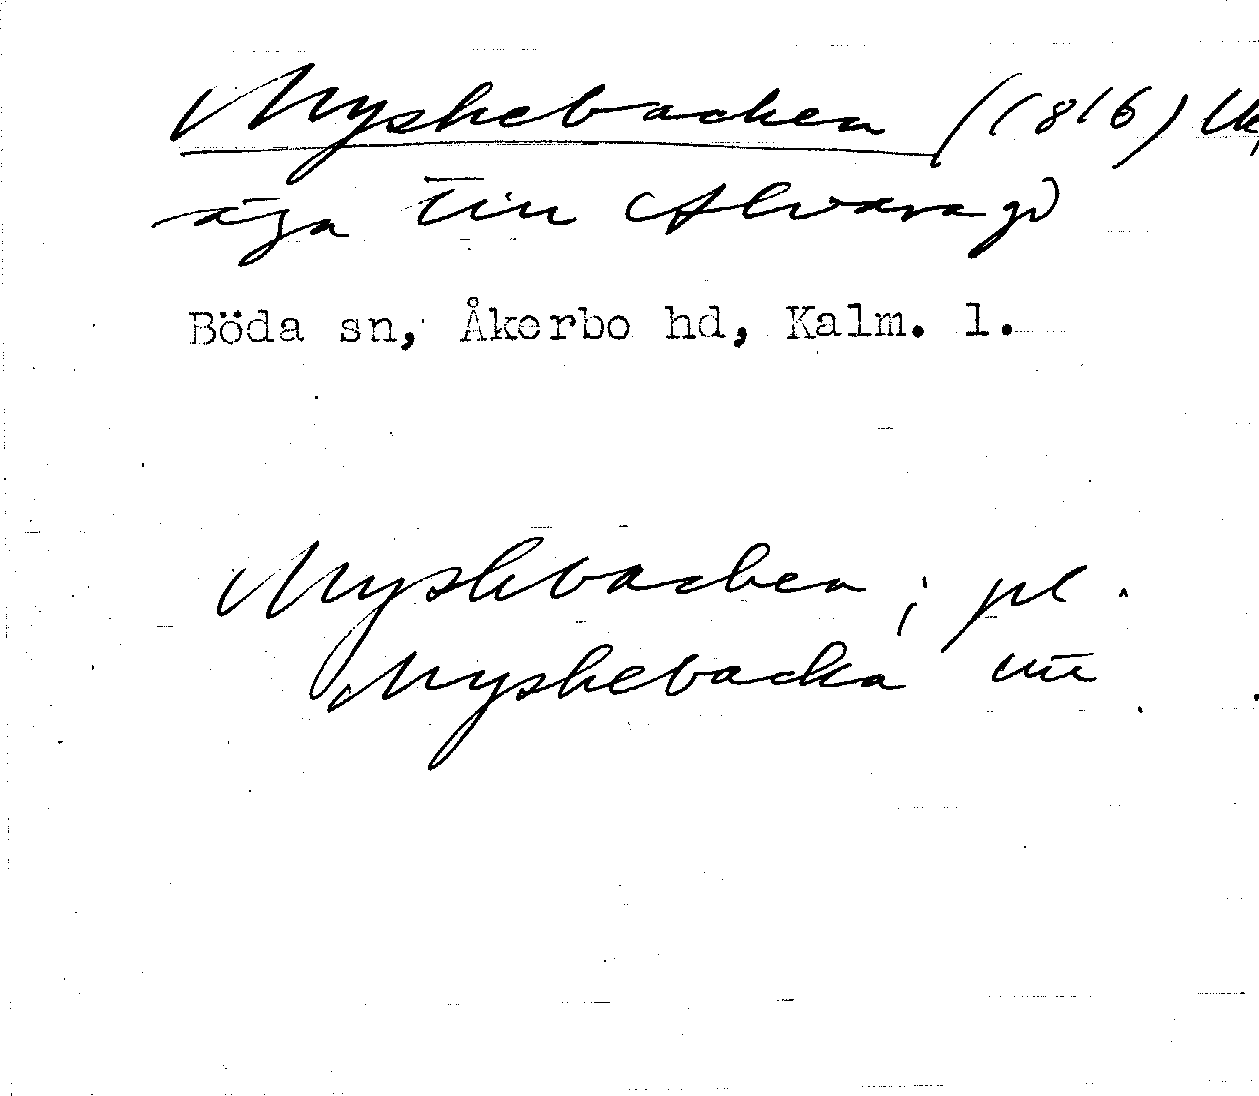 Myskebacken (1816)
äga till (Alvara gd)
Böda sn, Åkerbo hd, Kalm. l.
Myskebacken, pl.
Myskebacka